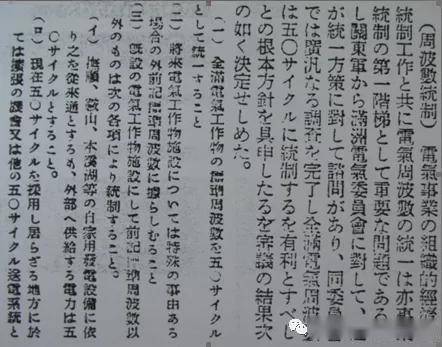 (周波數統制) 電氣事業の組織的經
統制工作と共に電氣周波數の統一は亦事
統制の第一階梯として重要な問題である
し關東軍から滿洲電氣委員會に對して、
が統一方策に對して諮問があり、同委員
では廣汎なる調査を完了し全滿電氣周波數
は五〇サイクルに統制するを有利とすべし
との根本方針を具申したるを審議の結果次
の如く決定せしめた。
(一) 全滿電氣工作物の標準周波數を五〇サイクル
として統一すること
(二) 將來電氣工作物施設については特殊の事由ある
場合の外前記標準周波數に據らしむること
(三) 既設の電氣工作物施設にして前記標準周波數以
外のものは次の各項により統制すること。
(イ) 撫順、鞍山、本溪湖等の自家用發電設備に依
り之を從來通とするも、外部へ供給する電力は五
〇サイクルとすること。
(ロ) 現在五〇サイクルを採用し居らざる地方に於
ては擴張の機會又は他の五〇サイクル送電系統と